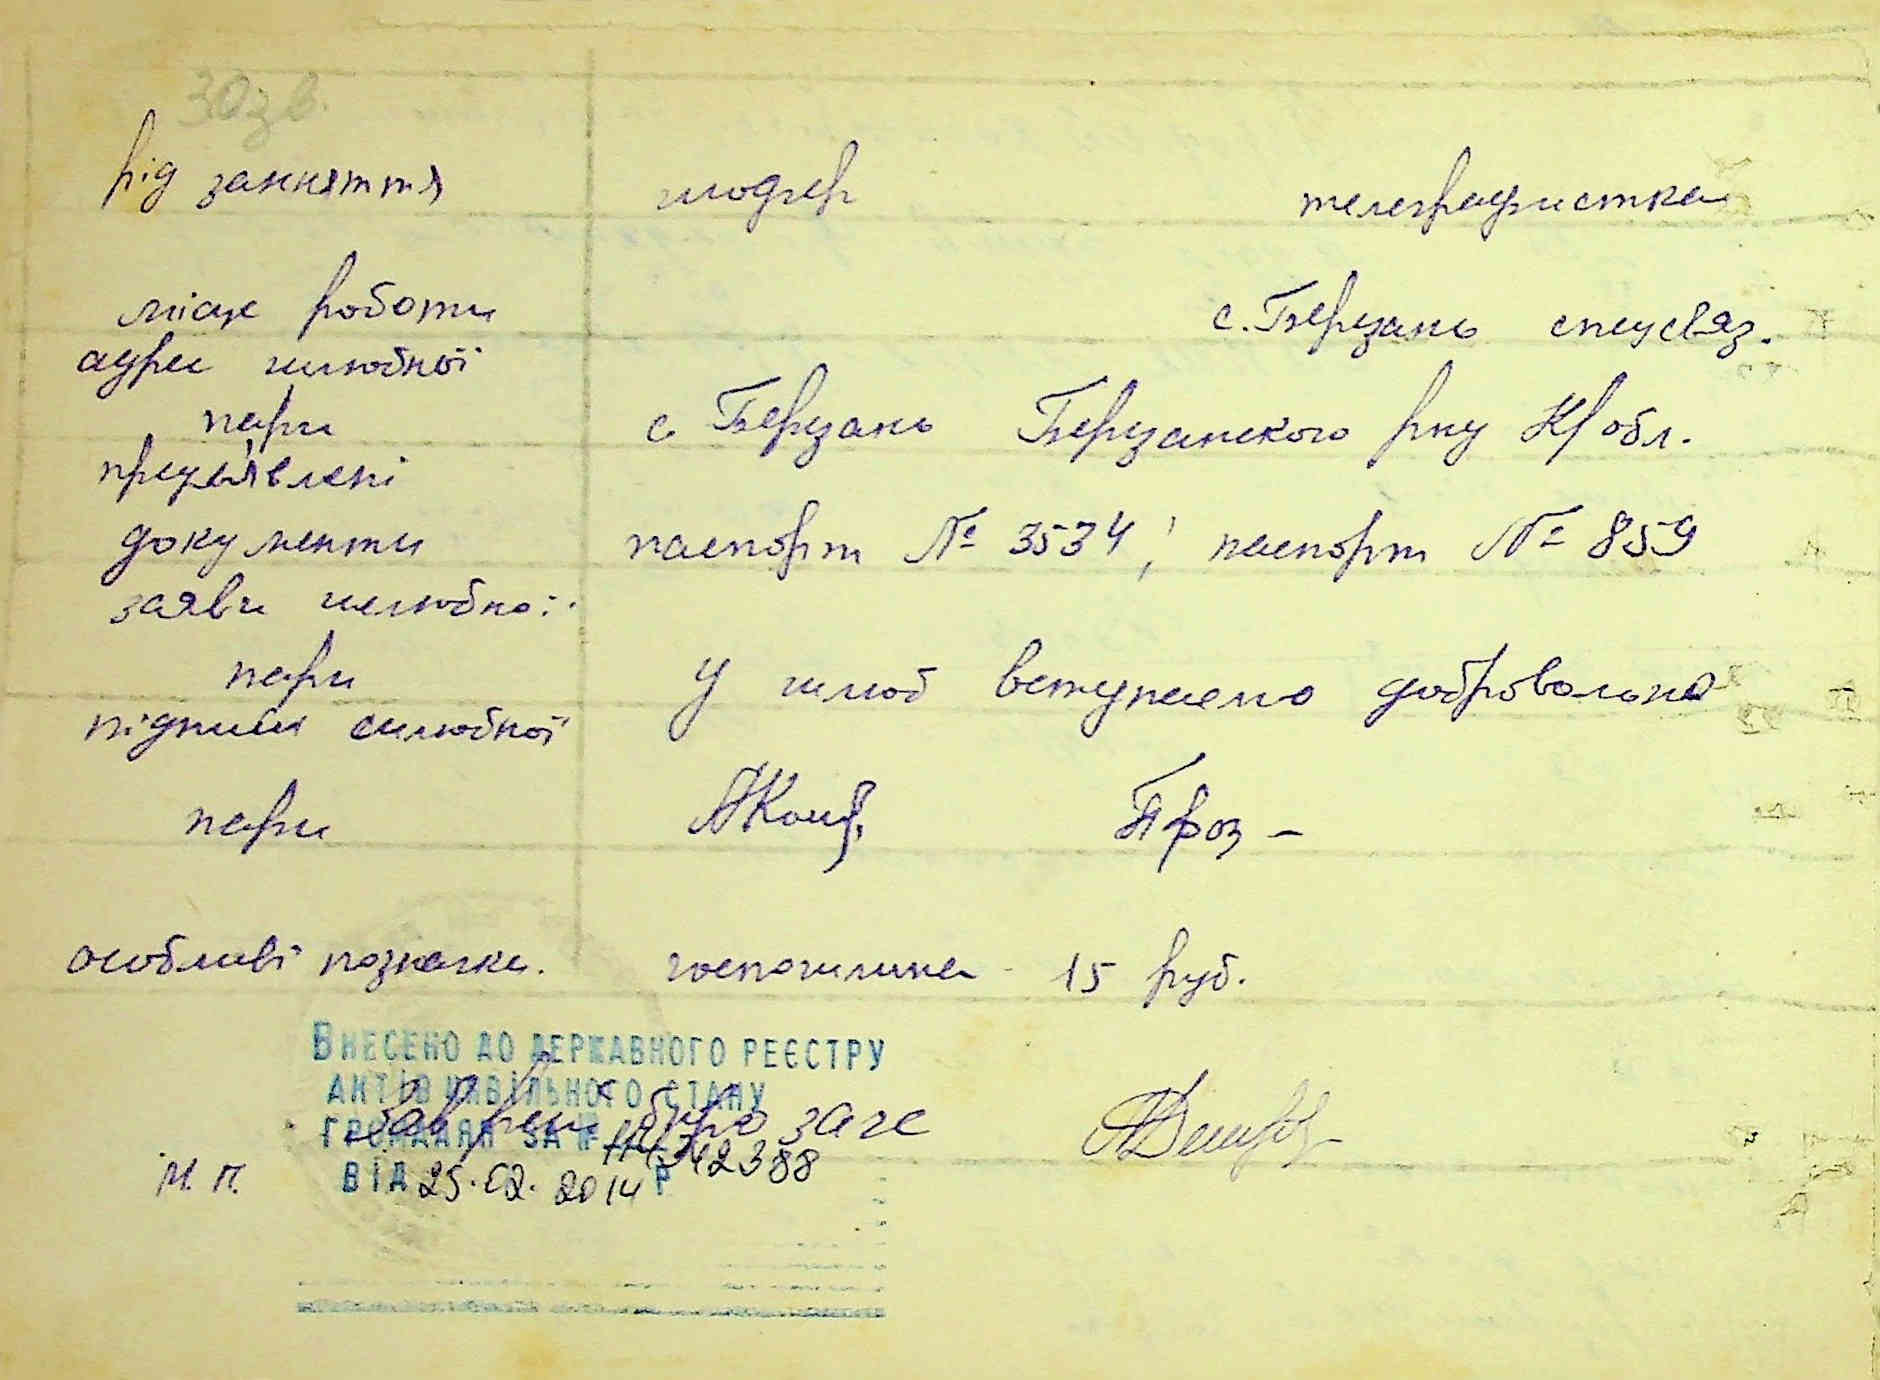 30зв.
рід занняття шофер телеграфистка
місце роботи с. Березань спецсвяз.
адрес шлюбної
пари с Березань Березанского рну К обл.
предъявлені
документи паспорт № 3534, паспорт № 859
заяви шлюбної
пари У шлюб вступаємо добровольно
підписи шлюбної
пари
особливі позначки. госпошлина - 15 руб.
ВНЕСЕНО ДО ДЕРЖАВНОГО РЕЄСТРУ
АКТІВ ЦИВІЛЬНОГО СТАНУ
ГРОМАДЯН ЗА №
Зав. бюро загс
М. П. ВІД 25.02.2014 Р